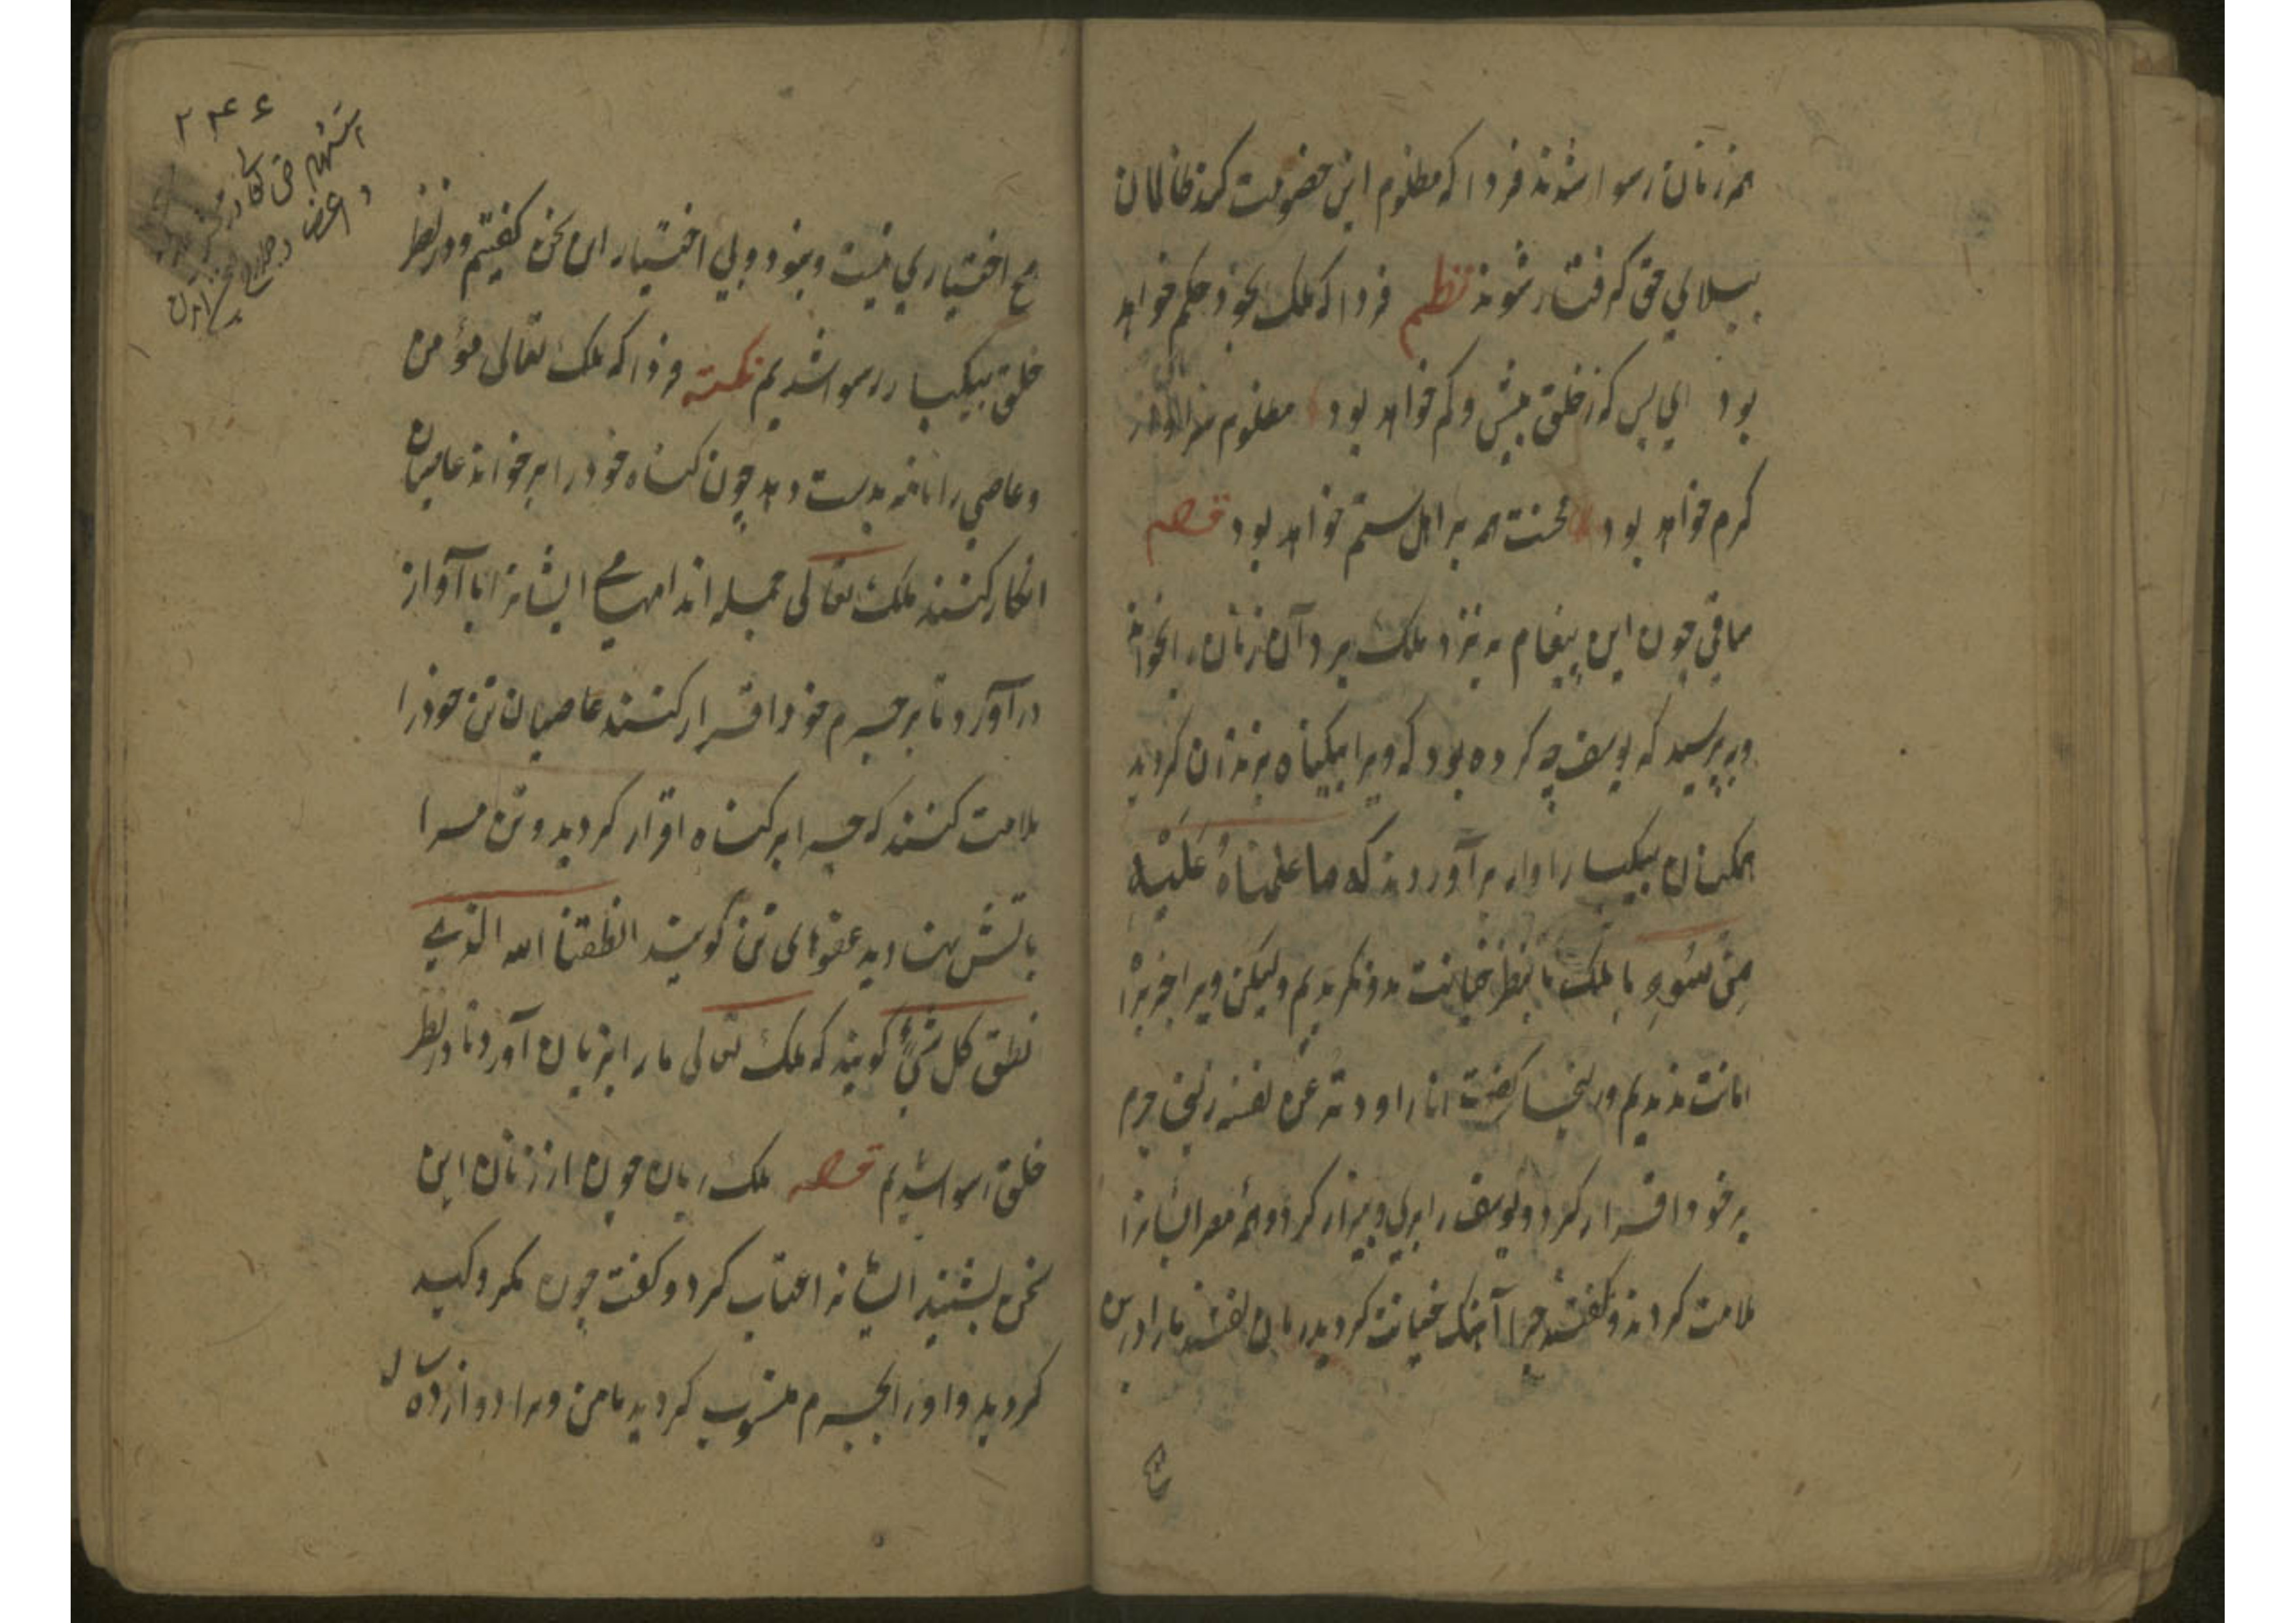 همه زنان رسوا شدند فردا که مظلوم این خصومت کند ظالمان
ببلای حق گرفتار شوند نظم فردا که ملک بخود حکم خواهد
بود ای بس که ز خلق بیش و کم خواهد بود مظلوم
کرم خواهد بود محنت همه بر اهل ستم خواهد بود قصه
ساقی چون این پیغام به نزد ملک برد آن زنان را بخواند
و بپرسید که یوسف چه کرده بود که ویرا بیگناه بزندان کردید
همکنان بیکبار اواز برآوردند که ما علمناه علیه
من سوء با ملک ما بنظر خیانت بدو نکردیم ولیکن ویرا جز برا
امانت ندیدیم و زلیخا گفت انا راودته عن نفسه زلیخا جرم
بر خود اقرار کرد و یوسف را بری و بیزار کرد و همه مصر ایشانرا
ملامت کردند و گفتند چرا آهنک خیانت کردید زنان گفتند ما را درین
هیچ اختیاری نیست و نبود و بی اختیار این سخن گفتیم و در نظر
خلق بیکبار رسوا شدیم نکته فردا که ملک تعالی مؤمن
و عاصی را نامه بدست دهد چون گناه خود را بر خوانند عاصیان
انکار کنند ملک تعالی جمله اندامهای ایشانرا با آواز
در آورد تا بر جرم خود اقرار کنند عاصیان تن خود را
ملامت کنند که چرا بر گناه اقرار کردید و تن مرا
باتش نهادید عضوهای تن گویند انطقنا الله الذی
نطق کل شیء گویند که ملک تعالی ما را بزبان آورد تا در نظر
خلق رسوا شدیم قصه ملک ریان چون از زنان این
سخن بشنید ایشانرا عتاب کرد و گفت چون مکر و کید
کردید و او را بجرم منسوب کردید تا من ویرا دوازده سال
۲۴۶